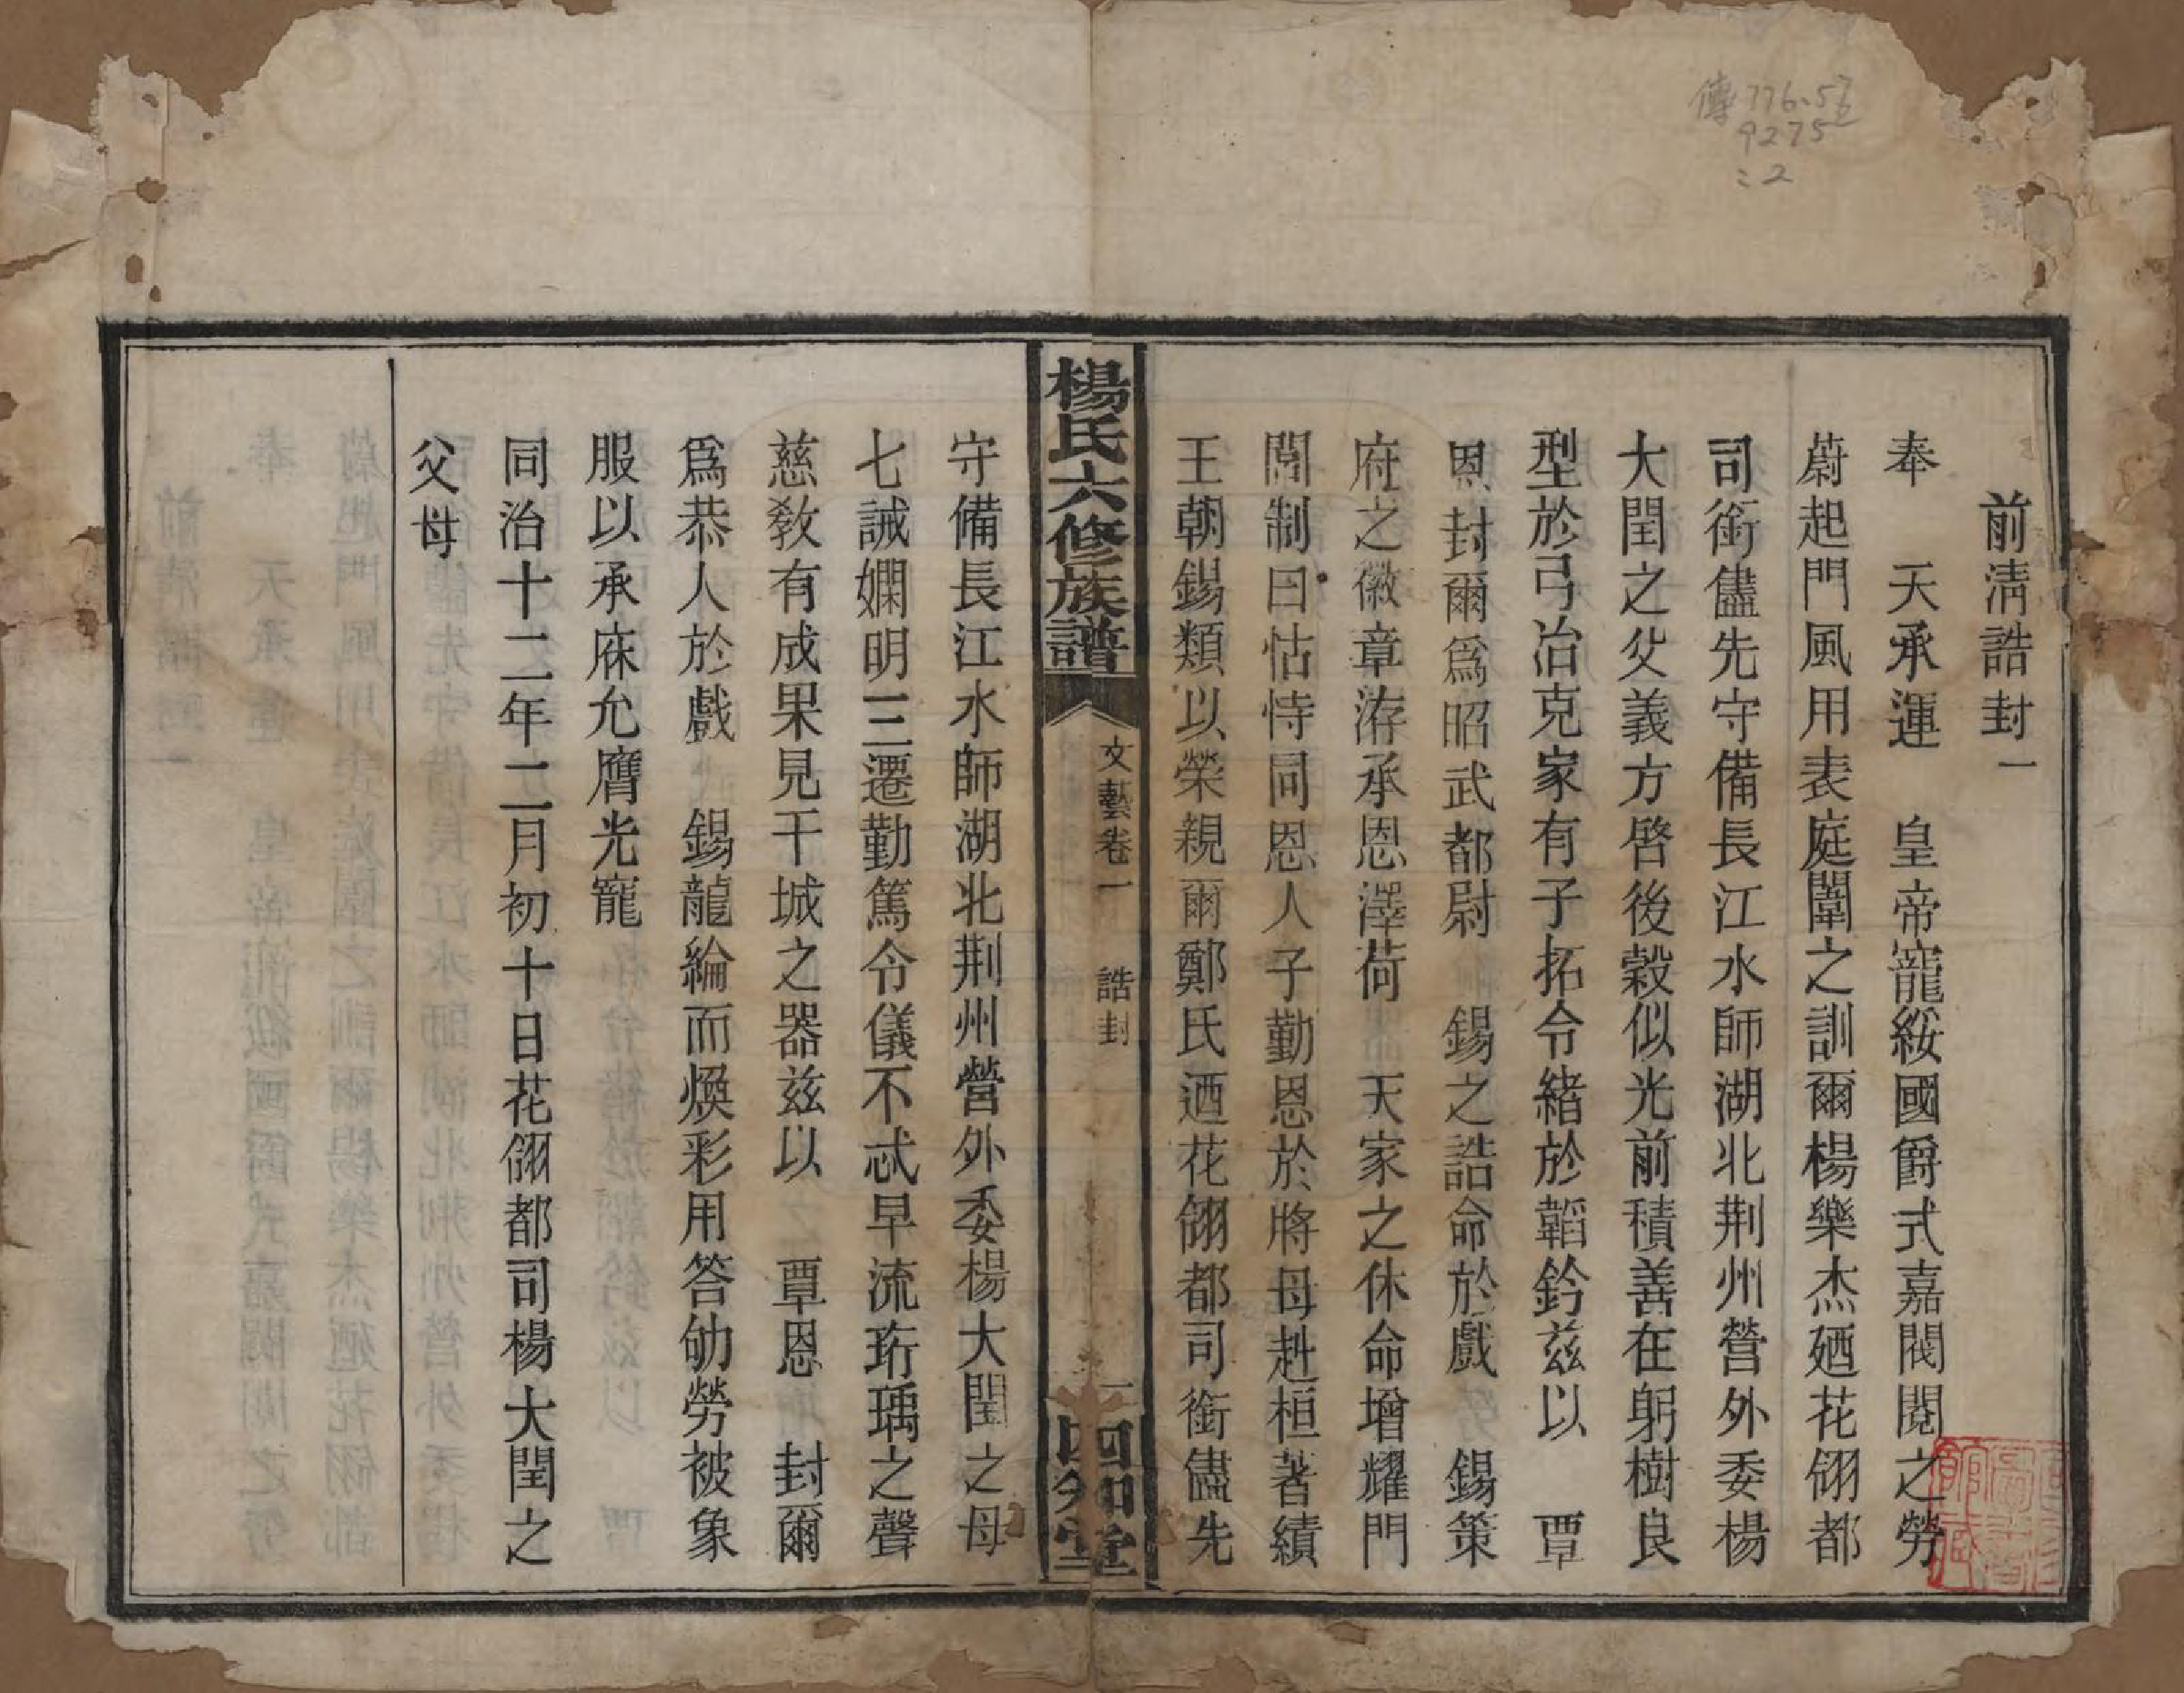 傳776.52
9275
:2
前淸誥封一
奉　天承運　皇帝寵綏國爵式嘉閥閱之勞
蔚起門風用表庭闈之訓爾楊樂杰廼花翎都
司銜儘先守備長江水師湖北荆州營外委楊
大閏之父義方啓後穀似光前積善在躬樹良
型於弓冶克家有子拓令緒於韜鈐茲以　覃
恩封爾爲昭武都尉　錫之誥命於戲　錫策
府之徽章洊承恩澤荷　天家之休命增耀門
閭制曰怙恃同恩人子勤恩於將母赳桓著績
王朝錫類以榮親爾鄭氏迺花翎都司銜儘先
楊氏六修族譜
文藝卷一　誥封
一
四知堂
守備長江水師湖北荆州營外委楊大閏之母
七誡嫻明三遷勤篤令儀不忒早流珩瑀之聲
慈敎有成果見干城之器茲以　覃恩　封爾
爲恭人於戲　錫龍綸而煥彩用答劬勞被象
服以承庥允膺光寵
同治十二年二月初十日花翎都司楊大閏之
父母